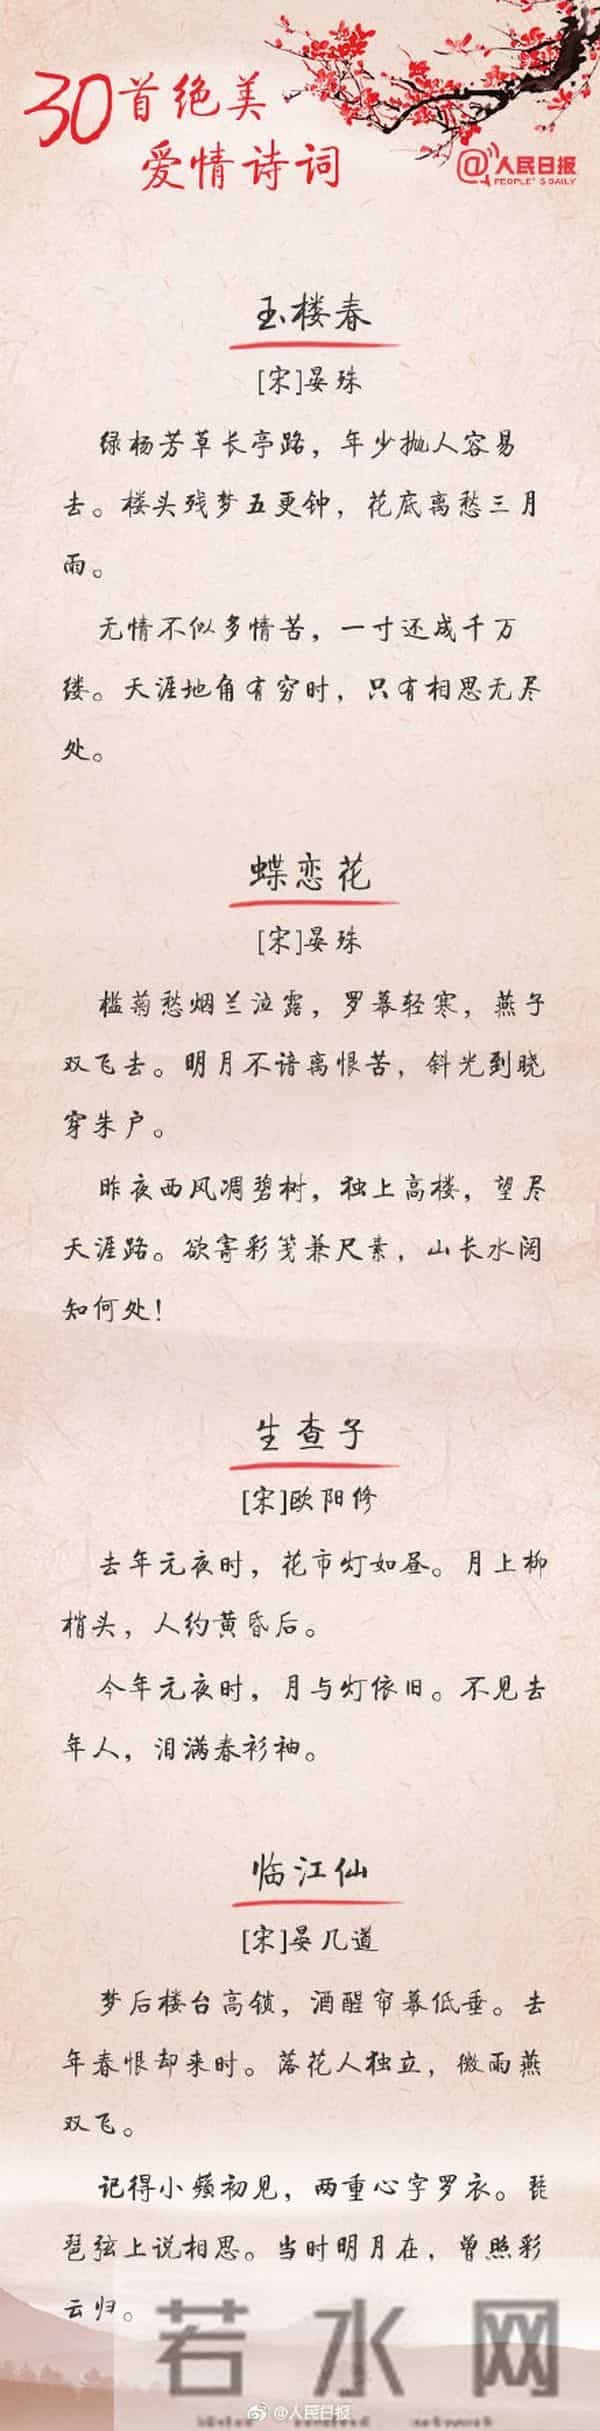 30首绝美
爱情诗词
@人民日报
PEOPLE'S DAILY
玉楼春
[宋]晏殊
绿杨芳草长亭路，年少抛人容易
去。楼头残梦五更钟，花底离愁三月
雨。
无情不似多情苦，一寸还成千万
缕。天涯地角有穷时，只有相思无尽
处。
蝶恋花
[宋]晏殊
槛菊愁烟兰泣露，罗幕轻寒，燕子
双飞去。明月不谙离恨苦，斜光到晓
穿朱户。
昨夜西风凋碧树，独上高楼，望尽
天涯路。欲寄彩笺兼尺素，山长水阔
知何处！
生查子
[宋]欧阳修
去年元夜时，花市灯如昼。月上柳
梢头，人约黄昏后。
今年元夜时，月与灯依旧。不见去
年人，泪满春衫袖。
临江仙
[宋]晏几道
梦后楼台高锁，酒醒帘幕低垂。去
年春恨却来时。落花人独立，微雨燕
双飞。
记得小蘋初见，两重心字罗衣。琵
琶弦上说相思。当时明月在，曾照彩
云归。
若水网
@人民日报